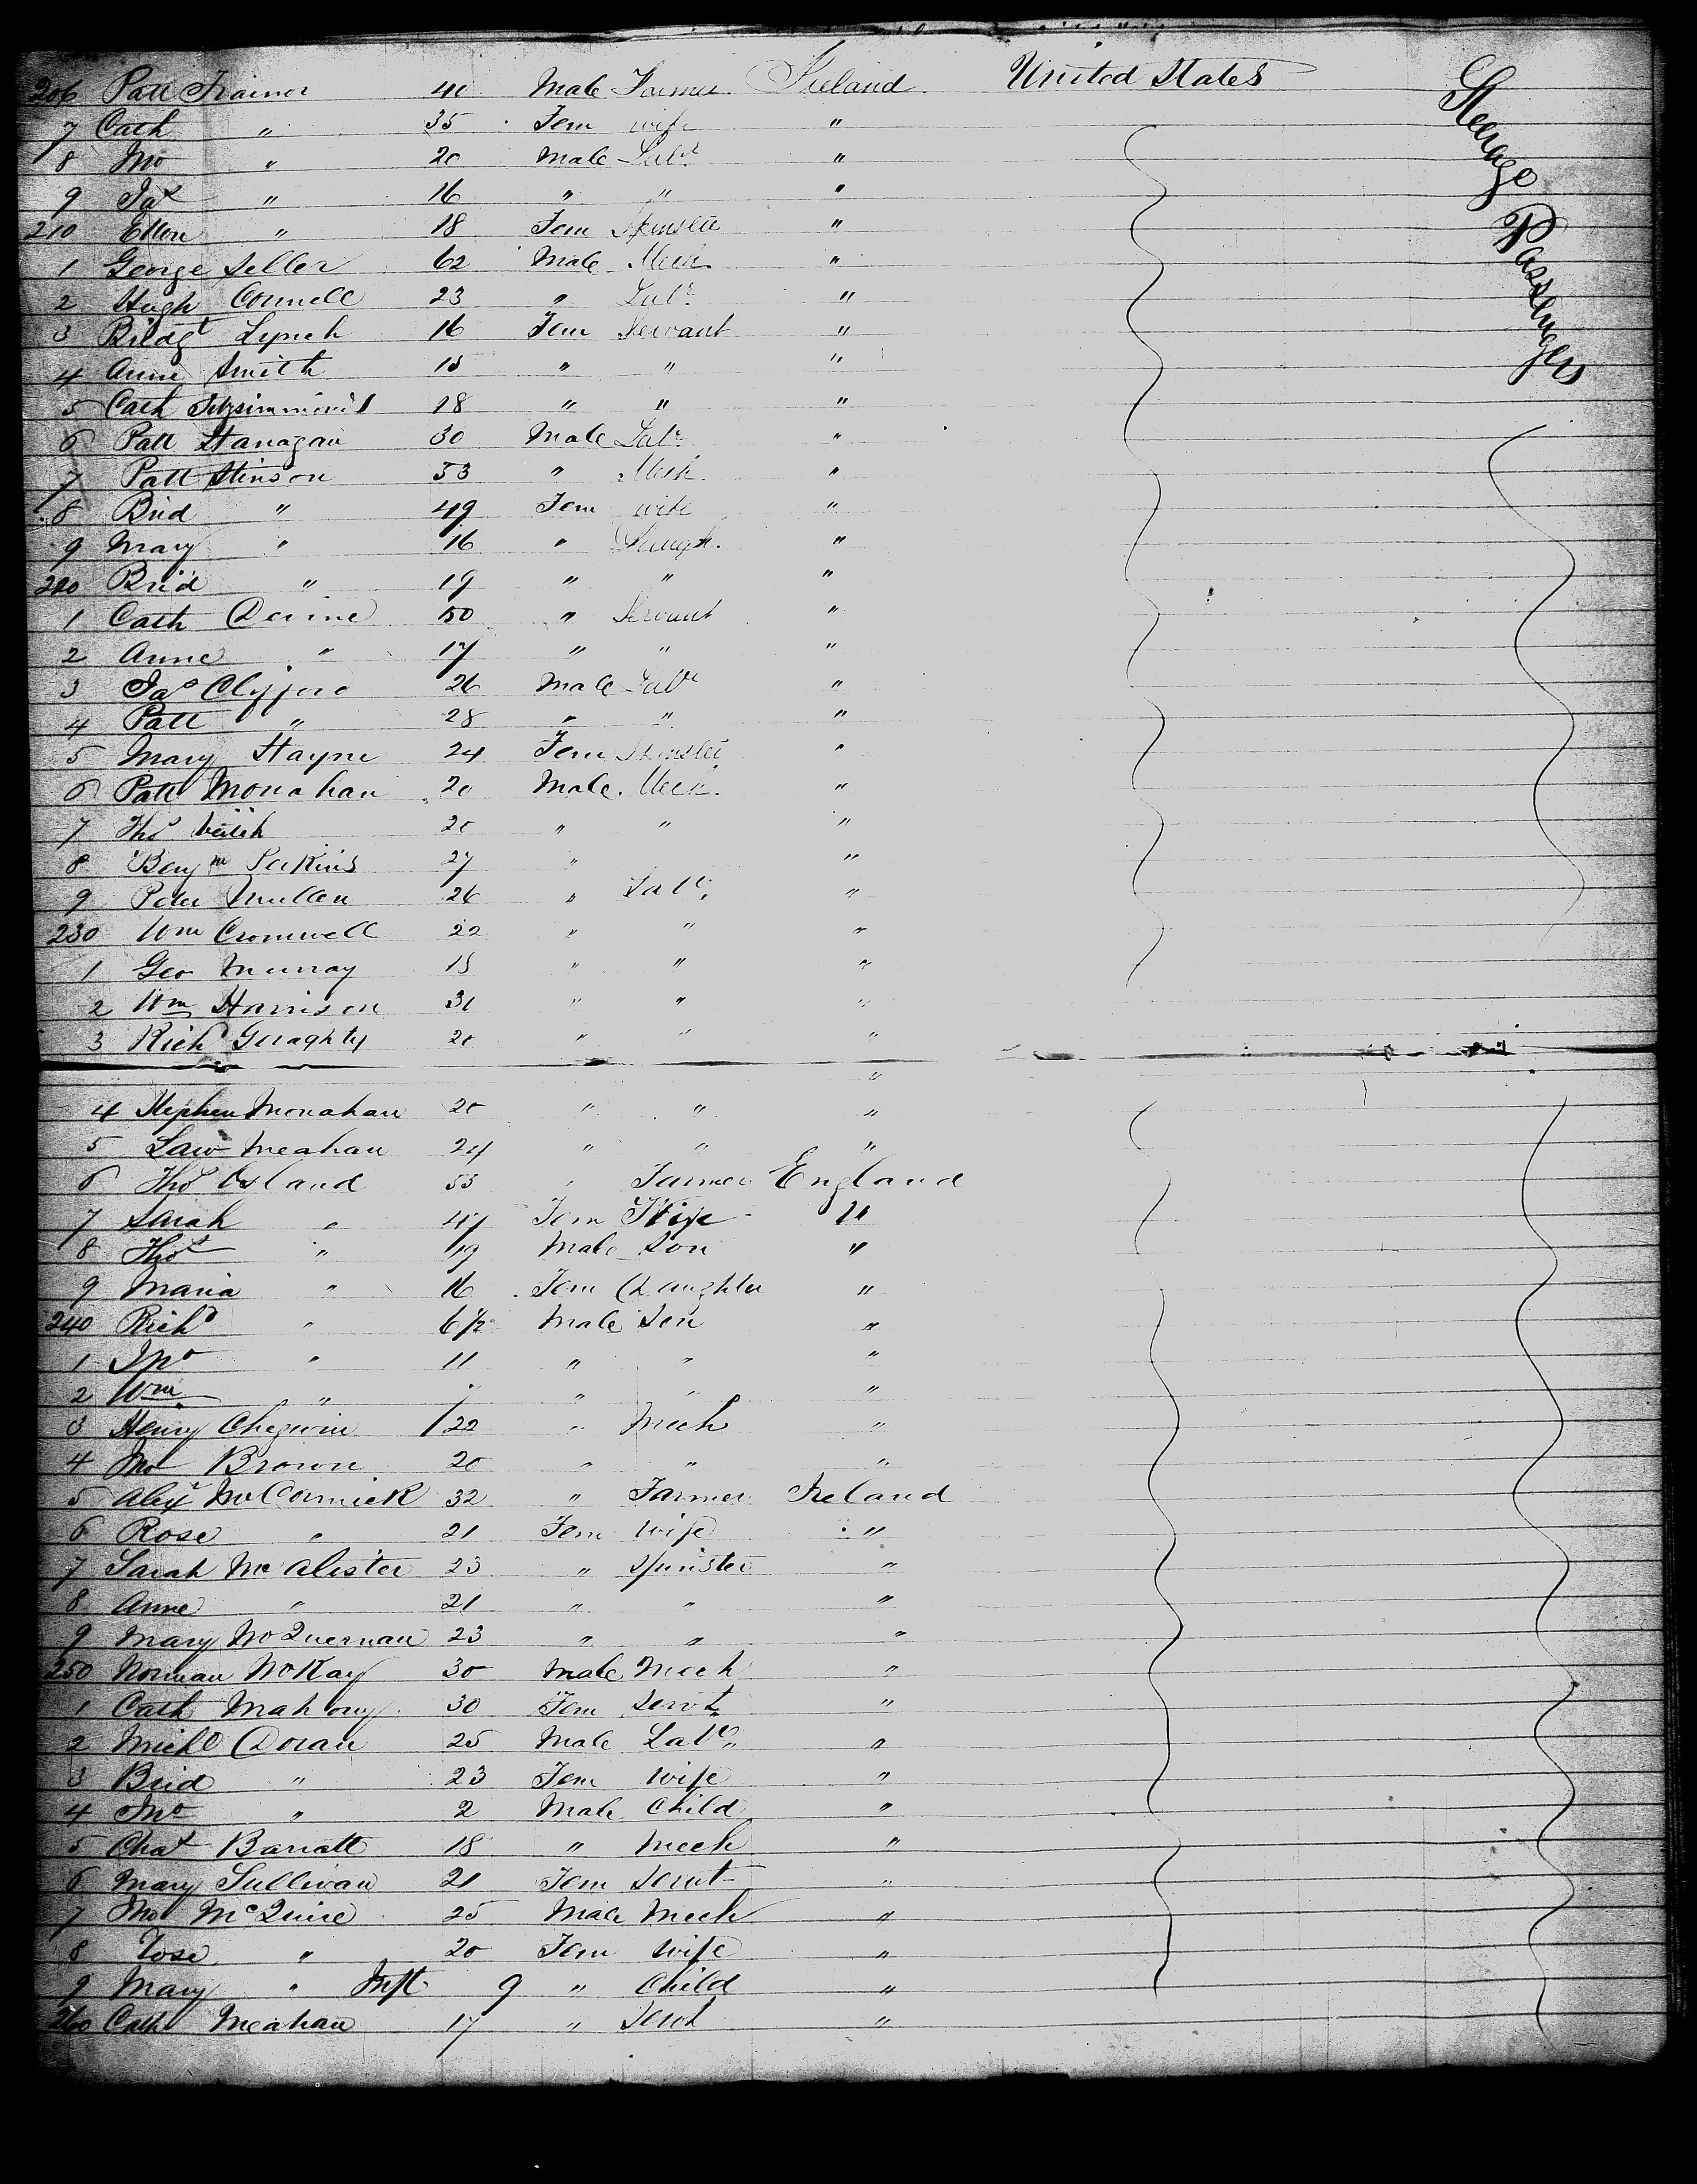 206 Patt Trainor 40 Male Farmer Ireland United States Steerage Passengers
7 Cath " 35 Fem wife "
8 Jno " 20 Male Labr "
9 Jas " 16 " " "
210 Ellen " 18 Fem Spinster "
1 George Seller 62 Male Mech "
2 Hugh Connell 23 " Labr "
3 Bridgt Lynch 16 Fem Servant "
4 Anne Smith 15 " " "
5 Cath Fitzsimmons 18 " " "
6 Patt Hanagan 30 Male Labr "
7 Patt Stinson 53 " Mech. "
8 Brid " 49 Fem wife "
9 Mary " 16 " Daugh. "
220 Brid " 19 " " "
1 Cath Devine 50 " Servant "
2 Anne " 17 " " "
3 Jas Clifford 26 Male Labr "
4 Patt " 28 " " "
5 Mary Hayne 24 Fem Spinster "
6 Patt Monahan 20 Male Mech. "
7 Thos 20 " " "
8 Benjm Perkins 27 " "
9 Peter Mullen 26 " Labr "
230 Wm Cromwell 22 " " "
1 Geo Murray 18 " " "
2 Wm Harrison 31 " " "
3 Richd Geraghty 20 " " "
"
4 Stephen Monahan 20 " " "
5 Law Meahan 24 " " "
6 Thos Island 53 " Farmer England
7 Sarah " 47 Fem Wife "
8 Thos " 19 Male Son "
9 Maria " 16 Fem Daughter "
240 Richd " 6 1/2 Male Son "
1 Jno " 11 " " "
2 Wm " " " "
3 Henry Chegwin 22 " Mech "
4 Jno Brown 20 " " "
5 Alexr McCormick 32 " Farmer Ireland
6 Rose " 21 Fem Wife "
7 Sarah McAlister 23 " Spinster "
8 Anne " 21 " " "
9 Mary McQuernan 23 " " "
250 Norman McKay 30 Male Mech "
1 Cath Mahony 30 Fem Servt "
2 Michl Doran 25 Male Labr "
3 Brid " 23 Fem Wife "
4 Jno " 2 Male Child "
5 Chas Barratt 18 " Mech "
6 Mary Sullivan 21 Fem Servt "
7 Jno McQuire 25 Male Mech "
8 Rose " 20 Fem Wife "
9 Mary " Inft 9 " Child "
260 Cath Meahan 17 " Servt "